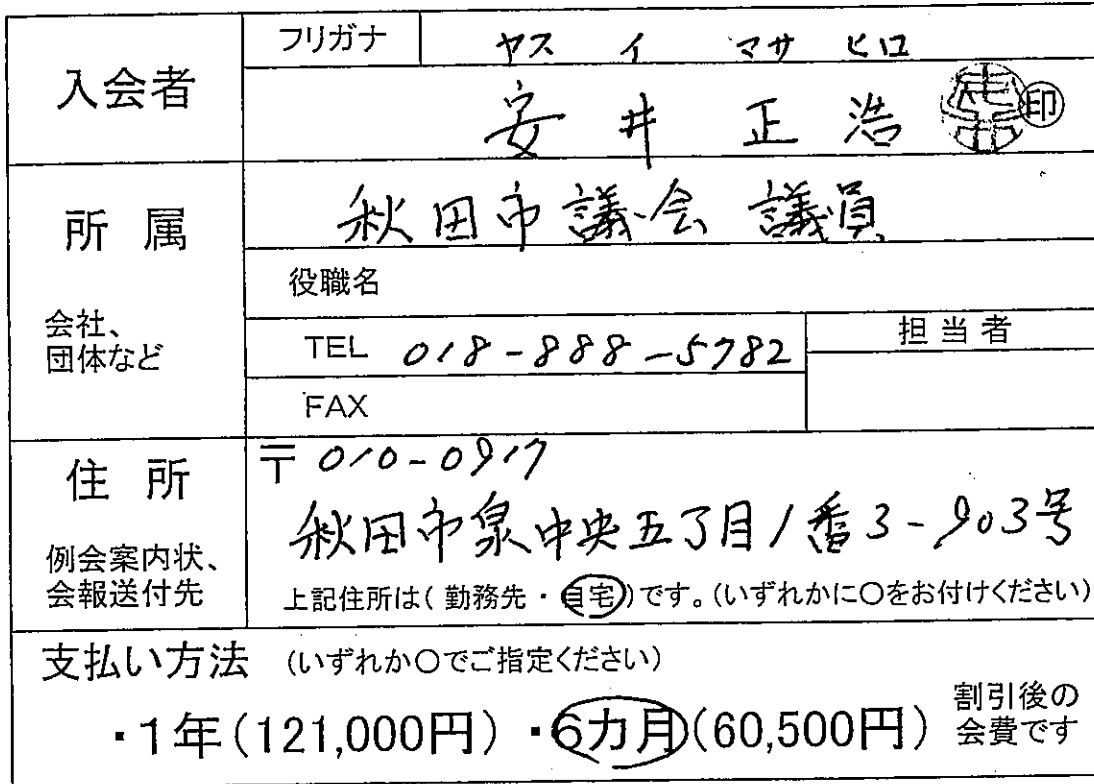 入会者
フリガナ ヤス イ マサ ヒロ
安井 正浩 印
所属
会社、
団体など
秋田市議会 議員
役職名
TEL 018-888-5782
担当者
FAX
住所
例会案内状、
会報送付先
〒010-0917
秋田市泉中央五丁目1番3-903号
上記住所は(勤務先・自宅)です。(いずれかに○をお付けください)
支払い方法 (いずれか○でご指定ください)
・1年(121,000円) ・6カ月(60,500円) 割引後の
会費です